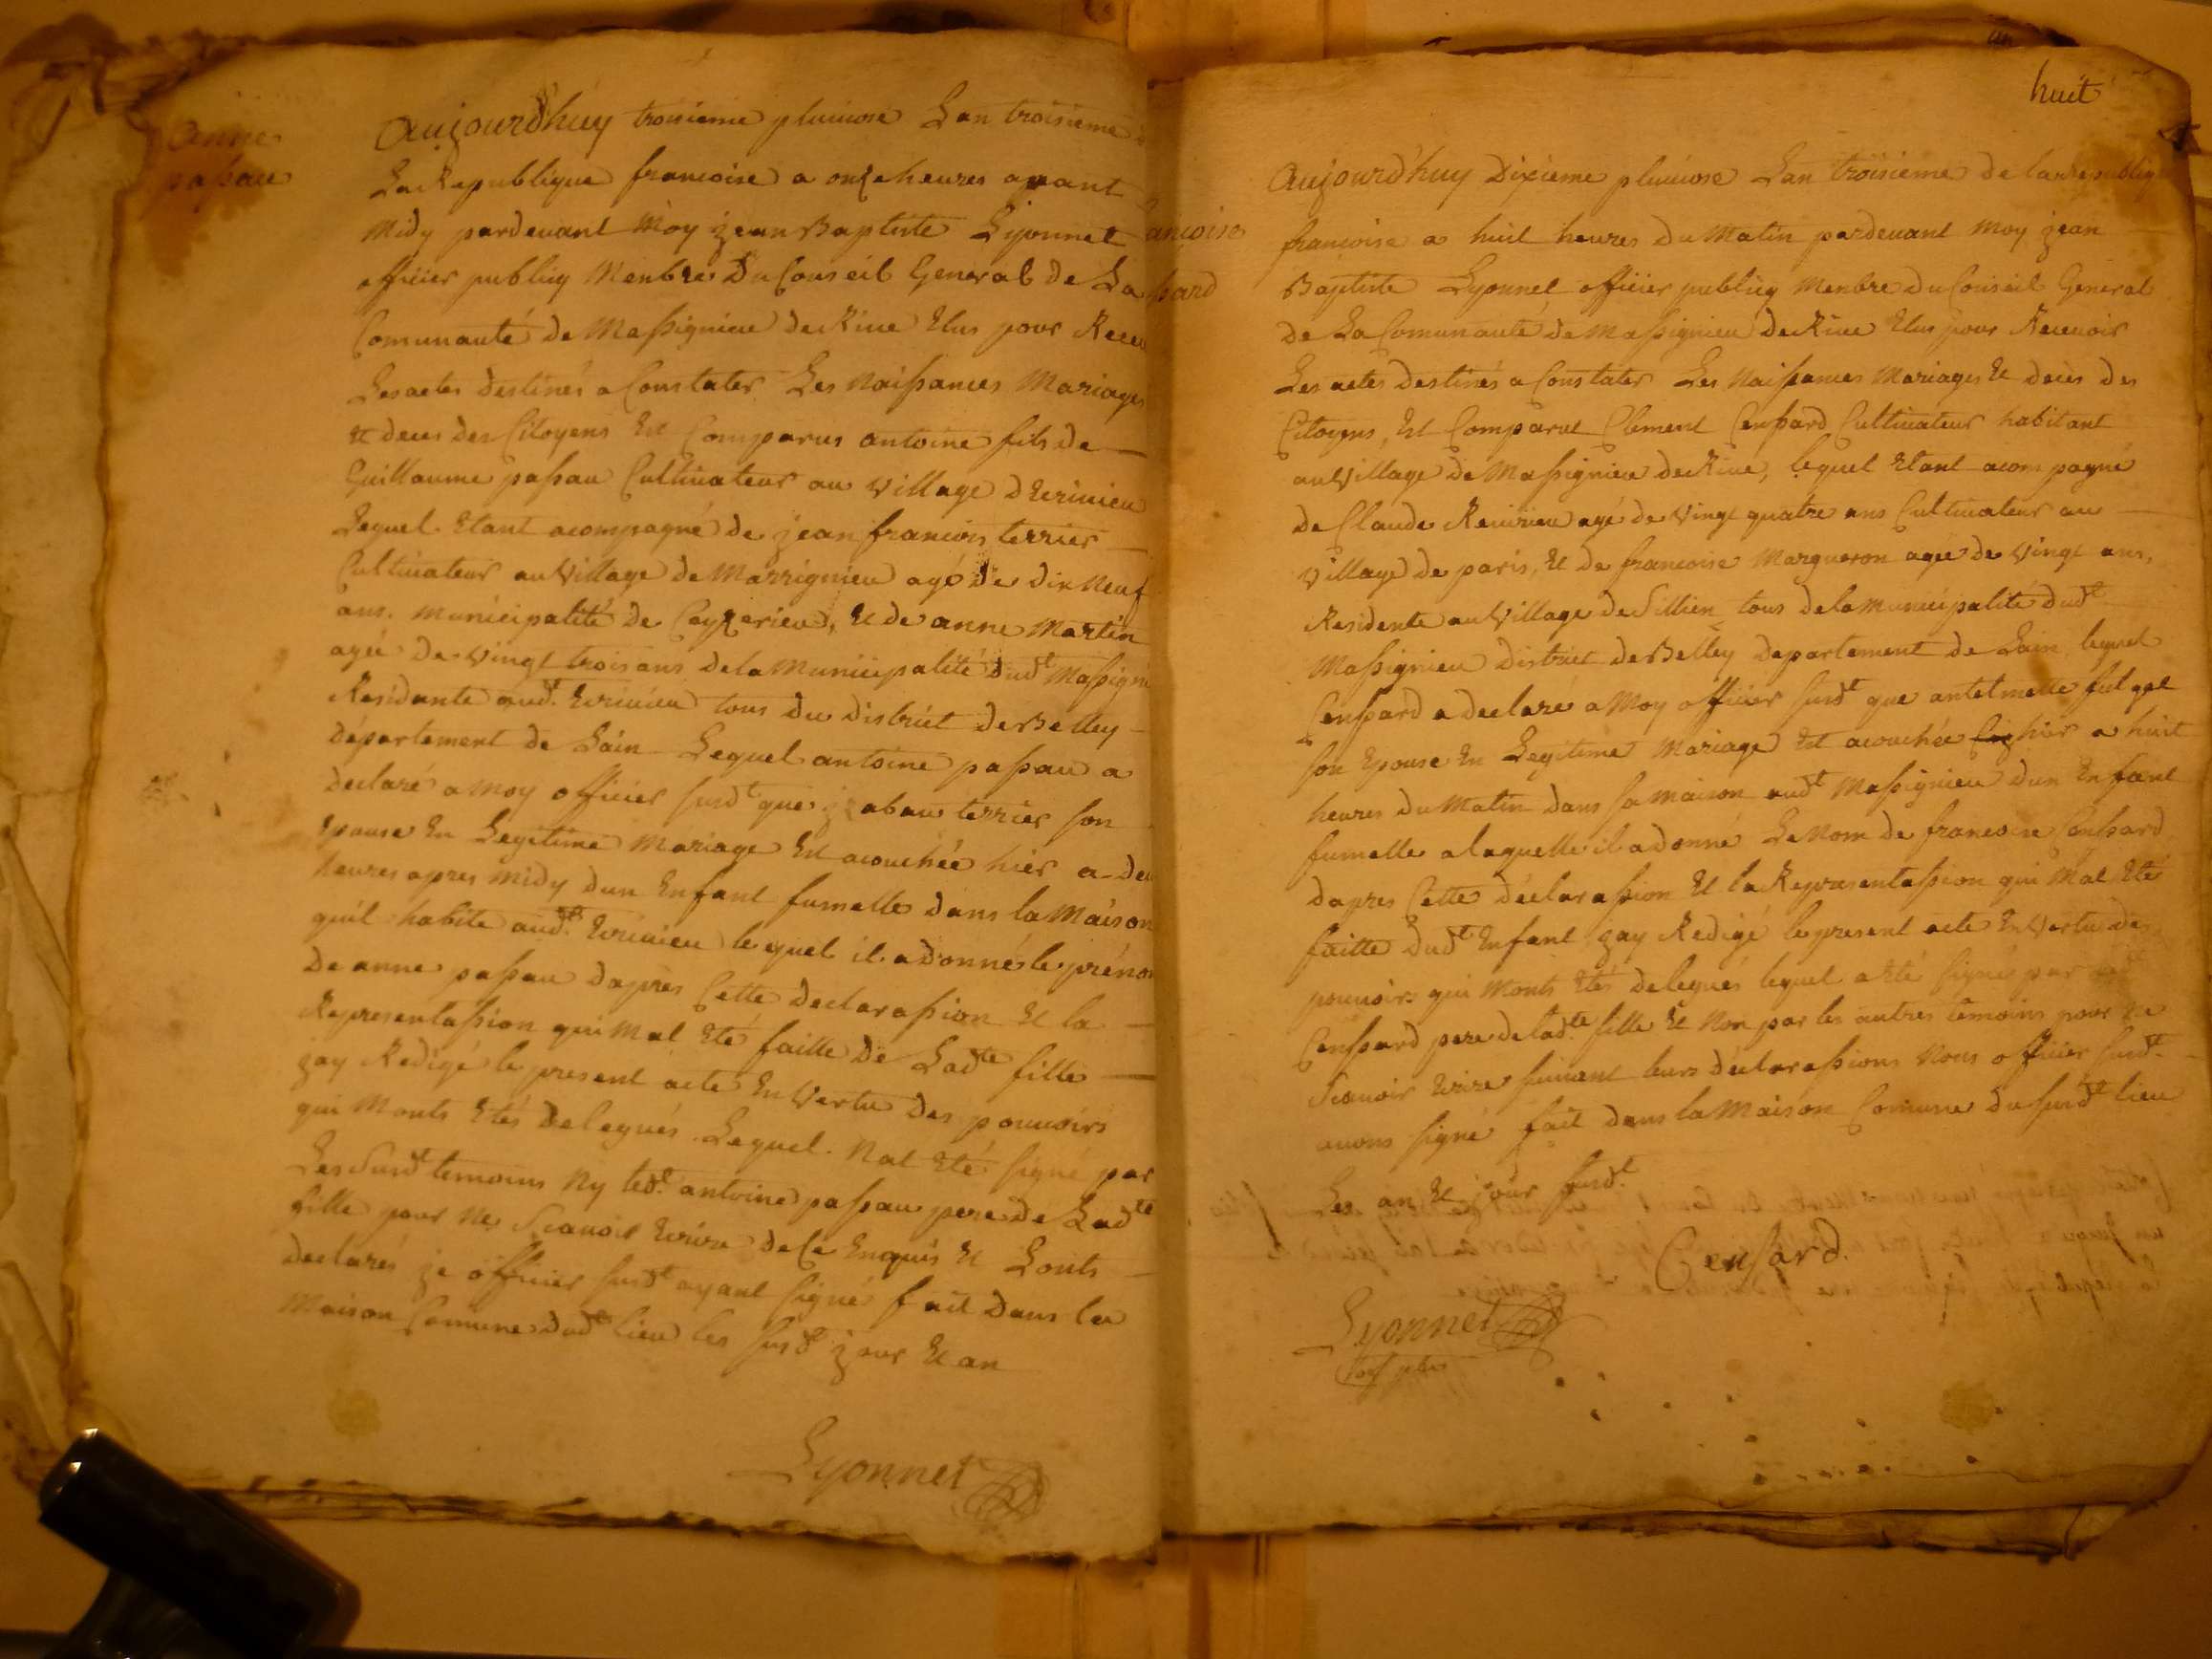 anne
paſsau
Aujourd'huy troisieme pluviose Lan troisieme
La Republique francoise a onze heures avant
Midy pardevant Moy jean Baptiste Lyonnet
officier publicq Menbre Du Conseil General de La
Comunauté de Maſsignieu de Rive Elus pour Recev
Les actes destinés a Constater Les Naiſsances Mariages
et deces des Citoyens Est Comparus antoine fils de
Guillaume paſsau Cultivateur au village d'Ecrivieu
Lequel Etant acompagné de jean francois terrier
Cultivateur au Village de Marrignieu agé de dix Neuf
ans. Municipalité de Ceyzerieu, Et de anne Martin
agée de vingt trois ans de la Municipalité dudt Maſsigni
Residante audt. Ecrivieu tous du district de Belley
département de Lain Lequel antoine paſsau a
declaré a Moy officier susdt que izabau terrier son
Epouse En Legitime Mariage Est acouchée hier a deu
heures apres Midy dun Enfant fumelle dans la Maison
quil habite audt. Ecrivieu lequel il a donnés le prénon
De anne paſsau dapres Cette declaraſsion Et la
Representaſsion qui Mat Eté faitte De Ladte fille
jay Redigé le present acte En Vertu Des pouvoirs
qui Monts Etés Delegués. Lequel. Nat Eté signé par
Les Susdt temoins Ny ledt. antoine paſsau pere de Ladte
fille pour Ne Scavoir Ecrire de Ce Enquis Et Lonts
declarés je officier susdt ayant signé fait Dans la
Maison Comune dudt lieu les susdt jour Et an
Lyonnet
huit
ancoise
ſsard
Aujourd'huy Dixieme pluviose Lan troisieme de la republiq
francoise a huit heures du Matin pardevant Moy jean
Baptiste Lyonnet officier publicq Menbre du Conseil General
de La Comunauté de Maſsignieu de Rive Elus pour Recevoir
Les actes destinés a Constater Les Naiſsances Mariages Et deces des
Citoyens, Est Comparut Clement Cenſsard Cultivateur habitant
au Village de Maſsignieu de Rive, lequel Etant acompagné
de Claude Revirieu agé de Vingt quatre ans Cultivateur au
Village de paris, Et de francoise Margueron agée de Vingt ans,
Residente au Village de Sillien tous de la Municipalité dudt
Maſsignieu district de Belley departement de Lain lequel
Cenſsard a declaré a Moy officier susdt que antelmette fulgat
son Epouse En Legitime Mariage Est acouchée hier a huit
heures du Matin dans sa maison audt Maſsignieu dun Enfant
fumelle a laquelle il a donné Le Nom de francoise Cenſsard
dapres Cette declaraſsion Et la Representaſsion qui Mat Eté
faitte dudt Enfant jay Redigé le present acte En Vertu des
pouvoirs qui Monts Etés delegués lequel a Eté signés par
Cenſsard pere de ladte. fille Et Non par les autres temoins pour Ne
Scavoir Ecrire suivant leurs declaraſsions Nous officier susdt.
avons signé fait dans la Maison Comune du susdt lieu
Les an Et jour susdt.
Censard.
Lyonnet